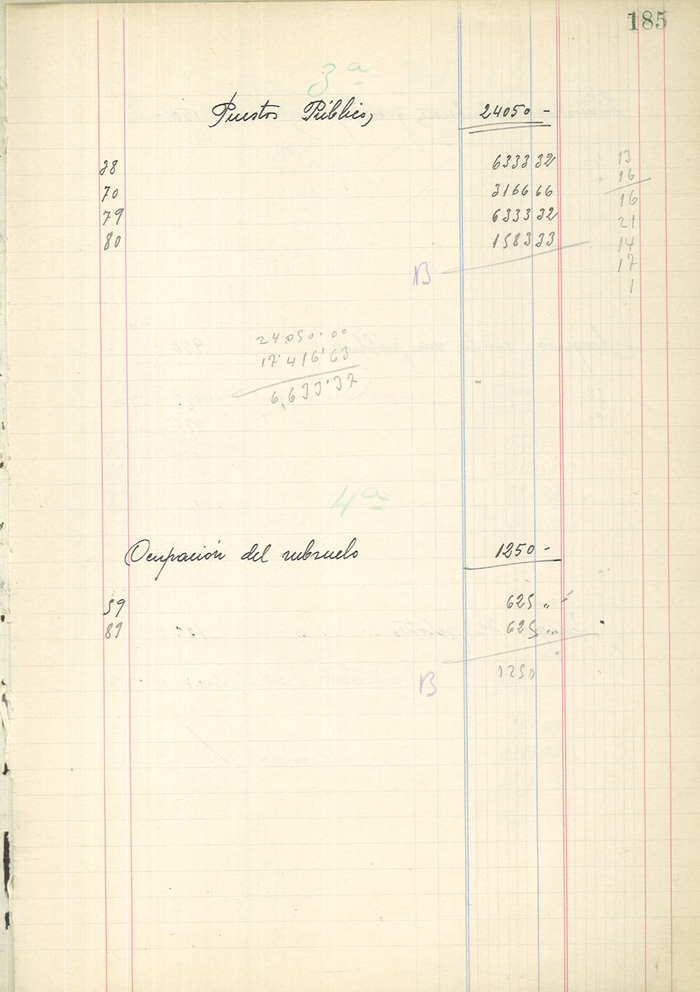 185
3ª
Puestos Públicos, 24050 -
38 6333 32 13
70 3166 66 16
79 6333 32 16
80 1583 33 21
14
B 17
1
24050.00
17.416,63
6,633.37
4ª
Ocupación del subsuelo 1250 -
59 625 "
81 625 "
B 1250